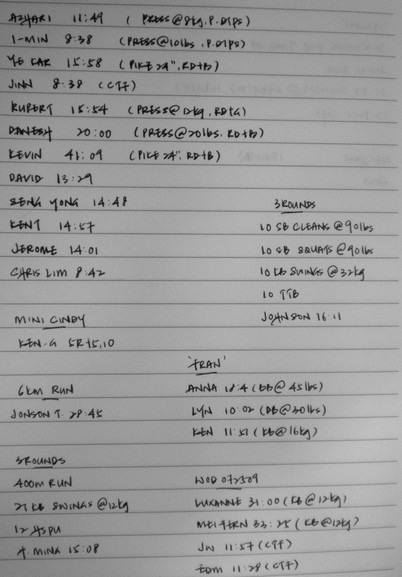 AZHARI 11:49 (PRESS@8kg, P.DIPS)
I-MIN 8:38 (PRESS@10lbs, P.DIPS)
YE KAR 15:58 (PIKE 24", RD+B)
JINN 8:38 (CFF)
RUPERT 15:54 (PRESS@12kg, RD+G)
DANESH 20:00 (PRESS@20lbs, RD+B)
KEVIN 41:09 (PIKE 24", RD+B)
DAVID 13:29
SENG YONG 14:48
KENT 14:57
JEROME 14:01
CHRIS LIM 8:42
3 ROUNDS
10 SB CLEANS @90lbs
10 SB SQUATS @90lbs
10 KB SWINGS @32kg
10 TTB
JOHNSON 16:11
MINI CINDY
KEN.G 5R+5,10
6KM RUN
JONSON T. 28:45
'FRAN'
ANNA 18:4 (BB@45lbs)
LYN 10:02 (DB@30lbs)
KEN 11:51 (KB@16kg)
3 ROUNDS
400m RUN
21 KB SWINGS @12kg
12 HSPU
MING 15:08
WOD 072509
LUXANNE 31:00 (KB@12kg)
MEI FERN 33:25 (KB@12kg)
JW 11:57 (CFF)
EDM 11:28 (CFF)